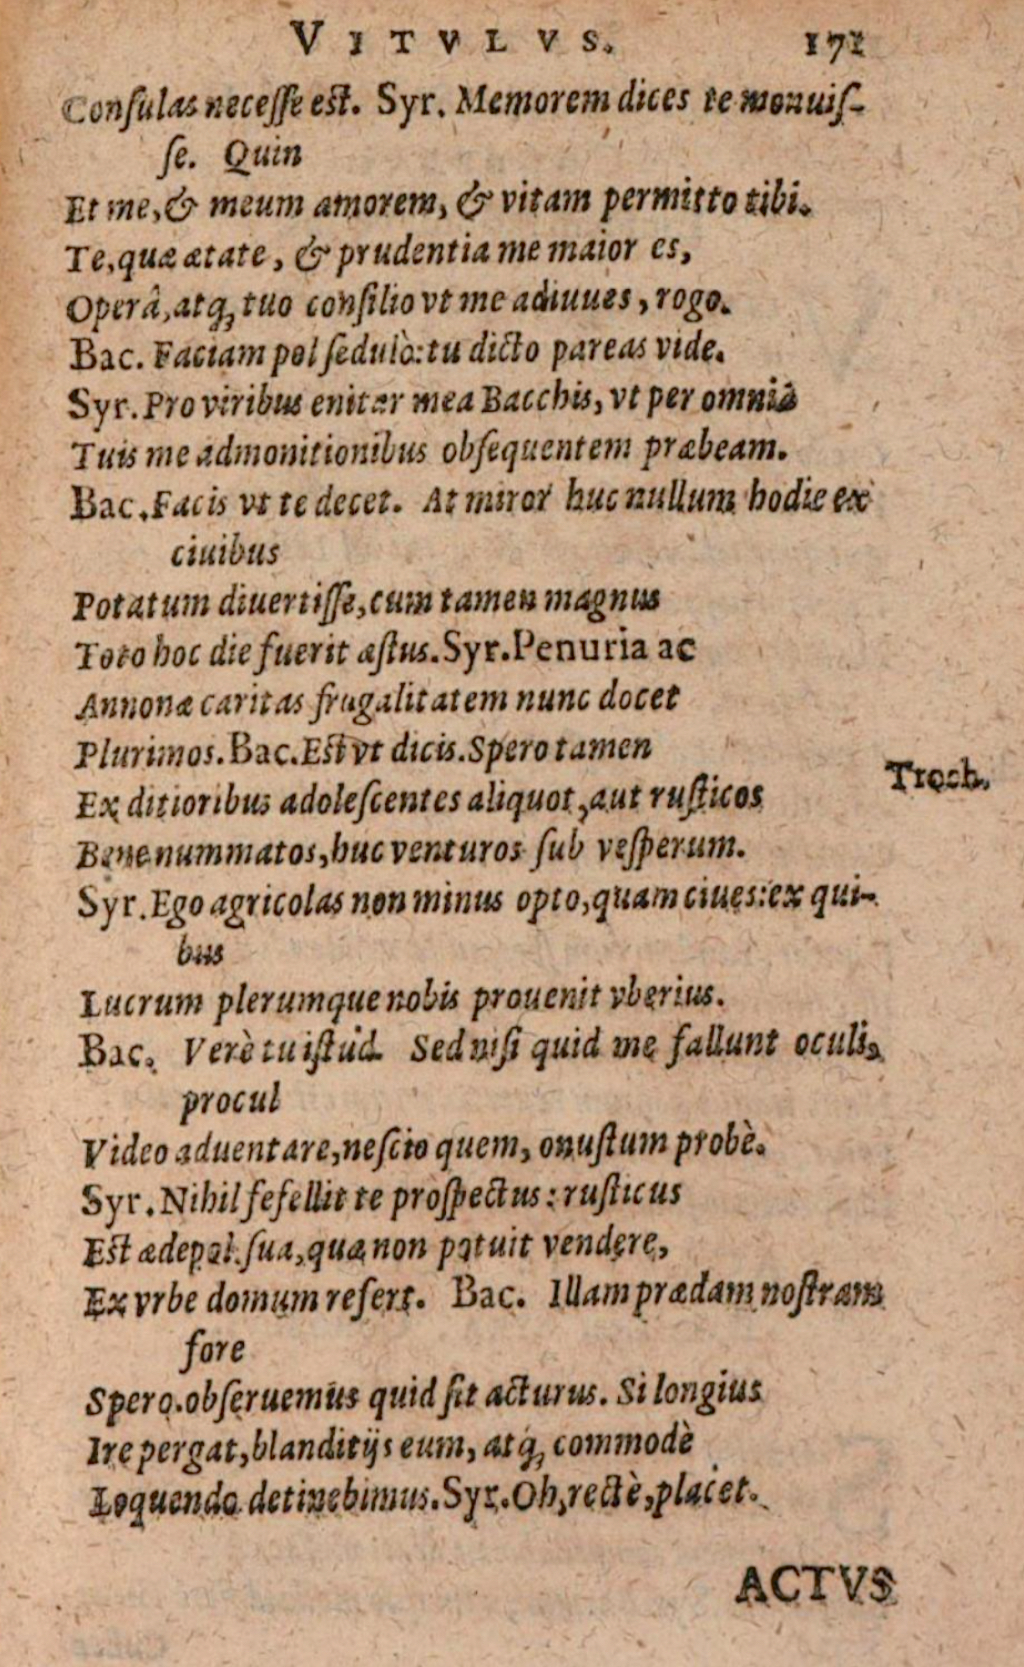 VITVLVS. 171
Conſulas neceſſe eſt. Syr. Memorem dices te monuiſ-
ſe. Quin
Et me, & meum amorem, & vitam permitto tibi.
Te, quæ ætate, & prudentia me maior es,
Operâ, atq; tuo conſilio vt me adiuues, rogo.
Bac. Faciam pol ſedulò: tu dicto pareas vide.
Syr. Pro viribus enitar mea Bacchis, vt per omnia
Tuis me admonitionibus obſequentem præbeam.
Bac. Facis vt te decet. At miror huc nullum hodie ex
ciuibus
Potatum diuertiſſe, cum tamen magnus
Toto hoc die fuerit æſtus. Syr. Penuria ac
Annonæ caritas frugalitatem nunc docet
Plurimos. Bac. Eſt vt dicis. Spero tamen
Troch.
Ex ditioribus adoleſcentes aliquot, aut ruſticos
Bene nummatos, huc venturos ſub veſperum.
Syr. Ego agricolas non minus opto, quam ciues: ex qui-
bus
Lucrum plerumque nobis prouenit vberius.
Bac. Verè tu iſtud. Sed niſi quid me fallunt oculi,
procul
Video aduentare, neſcio quem, onuſtum probè.
Syr. Nihil fefellit te proſpectus: ruſticus
Eſt ædepol. ſua, quæ non potuit vendere,
Ex vrbe domum refert. Bac. Illam prædam noſtram
fore
Spero. obſeruemus quid ſit acturus. Si longius
Ire pergat, blanditijs eum, atq; commodè
Loquendo detinebimus. Syr. Oh, rectè, placet.
ACTVS